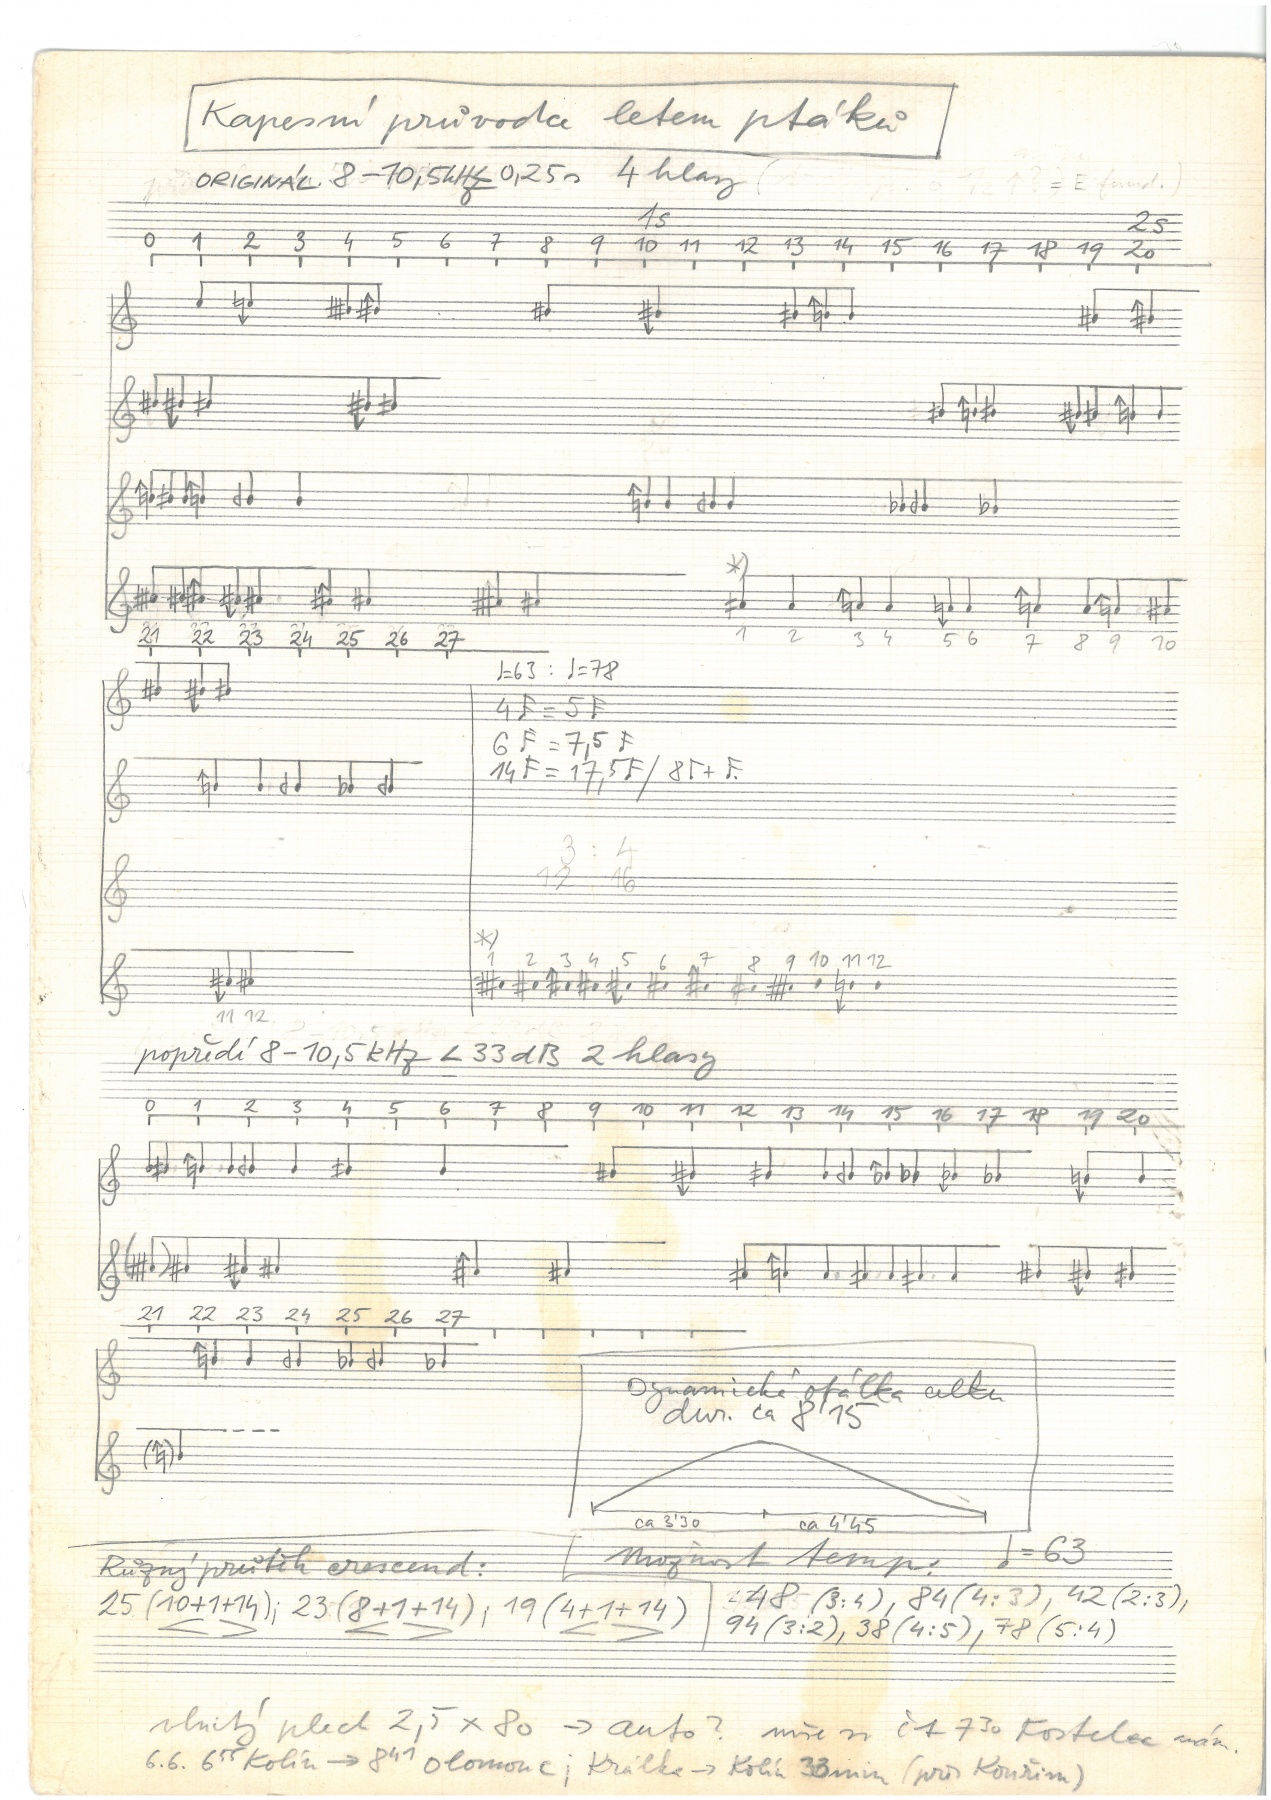 Kapesní průvodce letem ptáků
ORIGINÁL 8-10,5kHz 0,25s 4 hlasy
1s 2s
0 1 2 3 4 5 6 7 8 9 10 11 12 13 14 15 16 17 18 19 20
*)
1 2 3 4 5 6 7 8 9 10
21 22 23 24 25 26 27
♩=63 : ♩=78
4 = 5
6 = 7,5
14 = 17,5 / 8
3 : 4
12 16
*)
1 2 3 4 5 6 7 8 9 10 11 12
11 12
popředí 8-10,5kHz < 33dB 2 hlasy
0 1 2 3 4 5 6 7 8 9 10 11 12 13 14 15 16 17 18 19 20
21 22 23 24 25 26 27
Dynamická obálka celku
dur. ca 8'15
ca 3'30 ca 4'45
Různý průběh crescend:
25 (10+1+14); 23 (8+1+14); 19 (4+1+14)
Možnost temp: ♩=63
48 (3:4), 84 (4:3), 42 (2:3),
94 (3:2), 38 (4:5), 78 (5:4)
vlnitý plech 2,5 × 80 → auto? čt 7³⁰ Kostelec nám.
6.6. 6⁵⁵ Kolín → 8⁴¹ Olomouc; Králka → Kolín 33min (přes Kouřim)